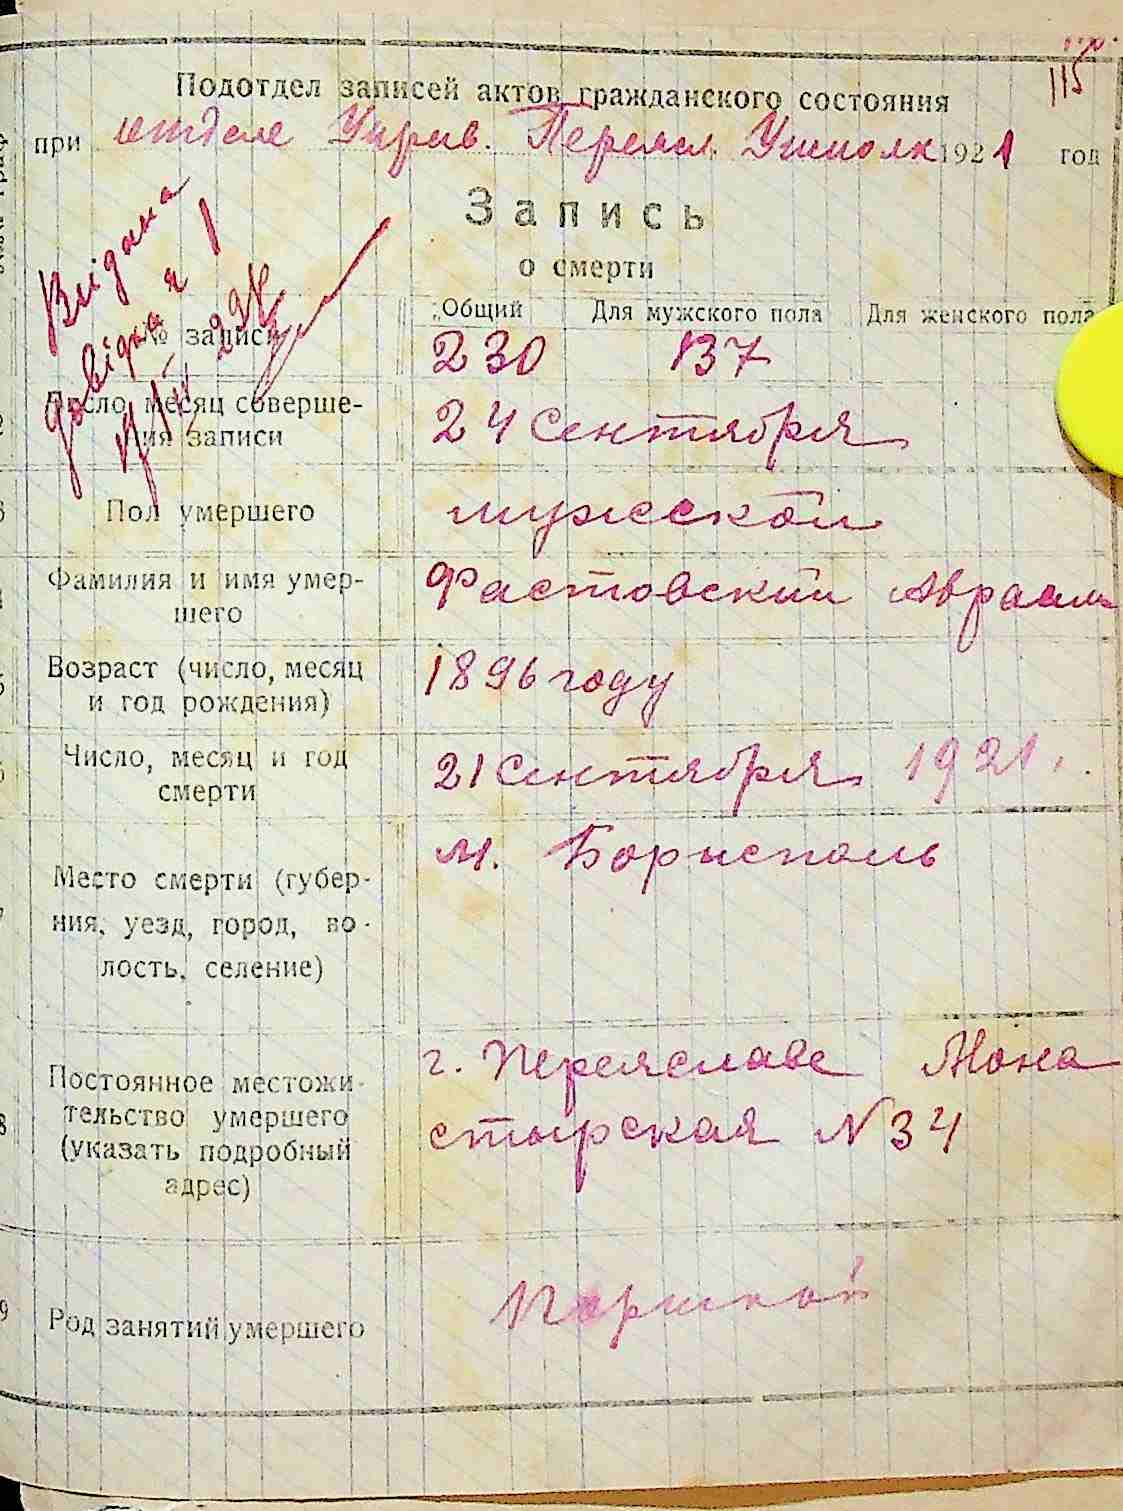 115
Подотдел записей актов гражданского состояния
при отделе Управ. Переясл. Уисполк 1921 год
Запись
о смерти
Видана
довідка
Общий Для мужского пола Для женского пола
№ записи 230 137
Число, месяц соверше-
ния записи 24 Сентября
Пол умершего мужской
Фамилия и имя умер-
шего Фастовский Авраам
Возраст (число, месяц
и год рождения) 1896 году
Число, месяц и год
смерти 21 Сентября 1921 г.
Место смерти (губер-
ния, уезд, город, во-
лость, селение) м. Борисполь
Постоянное местожи-
тельство умершего
(указать подробный
адрес) г. Переяславе Мона
стырская N 34
9 Род занятий умершего Портной